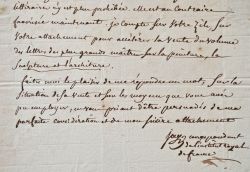 littéraire, y est plus prohibée
favorisée maintenant. je compte sur votre zèle, sur
votre attachement pour accélérer la vente du volume
des lettres des plus grands maîtres sur la peinture, la
sculpture et l'architecture.
faites moi le plaisir de me répondre un mot, sur la
situation de la vente et sur les moyens que vous avez
pu employer, en vous priant d'être persuadés de ma
parfaite considération et de mon sincère attachement
correspondant
de l'institut royal
de france